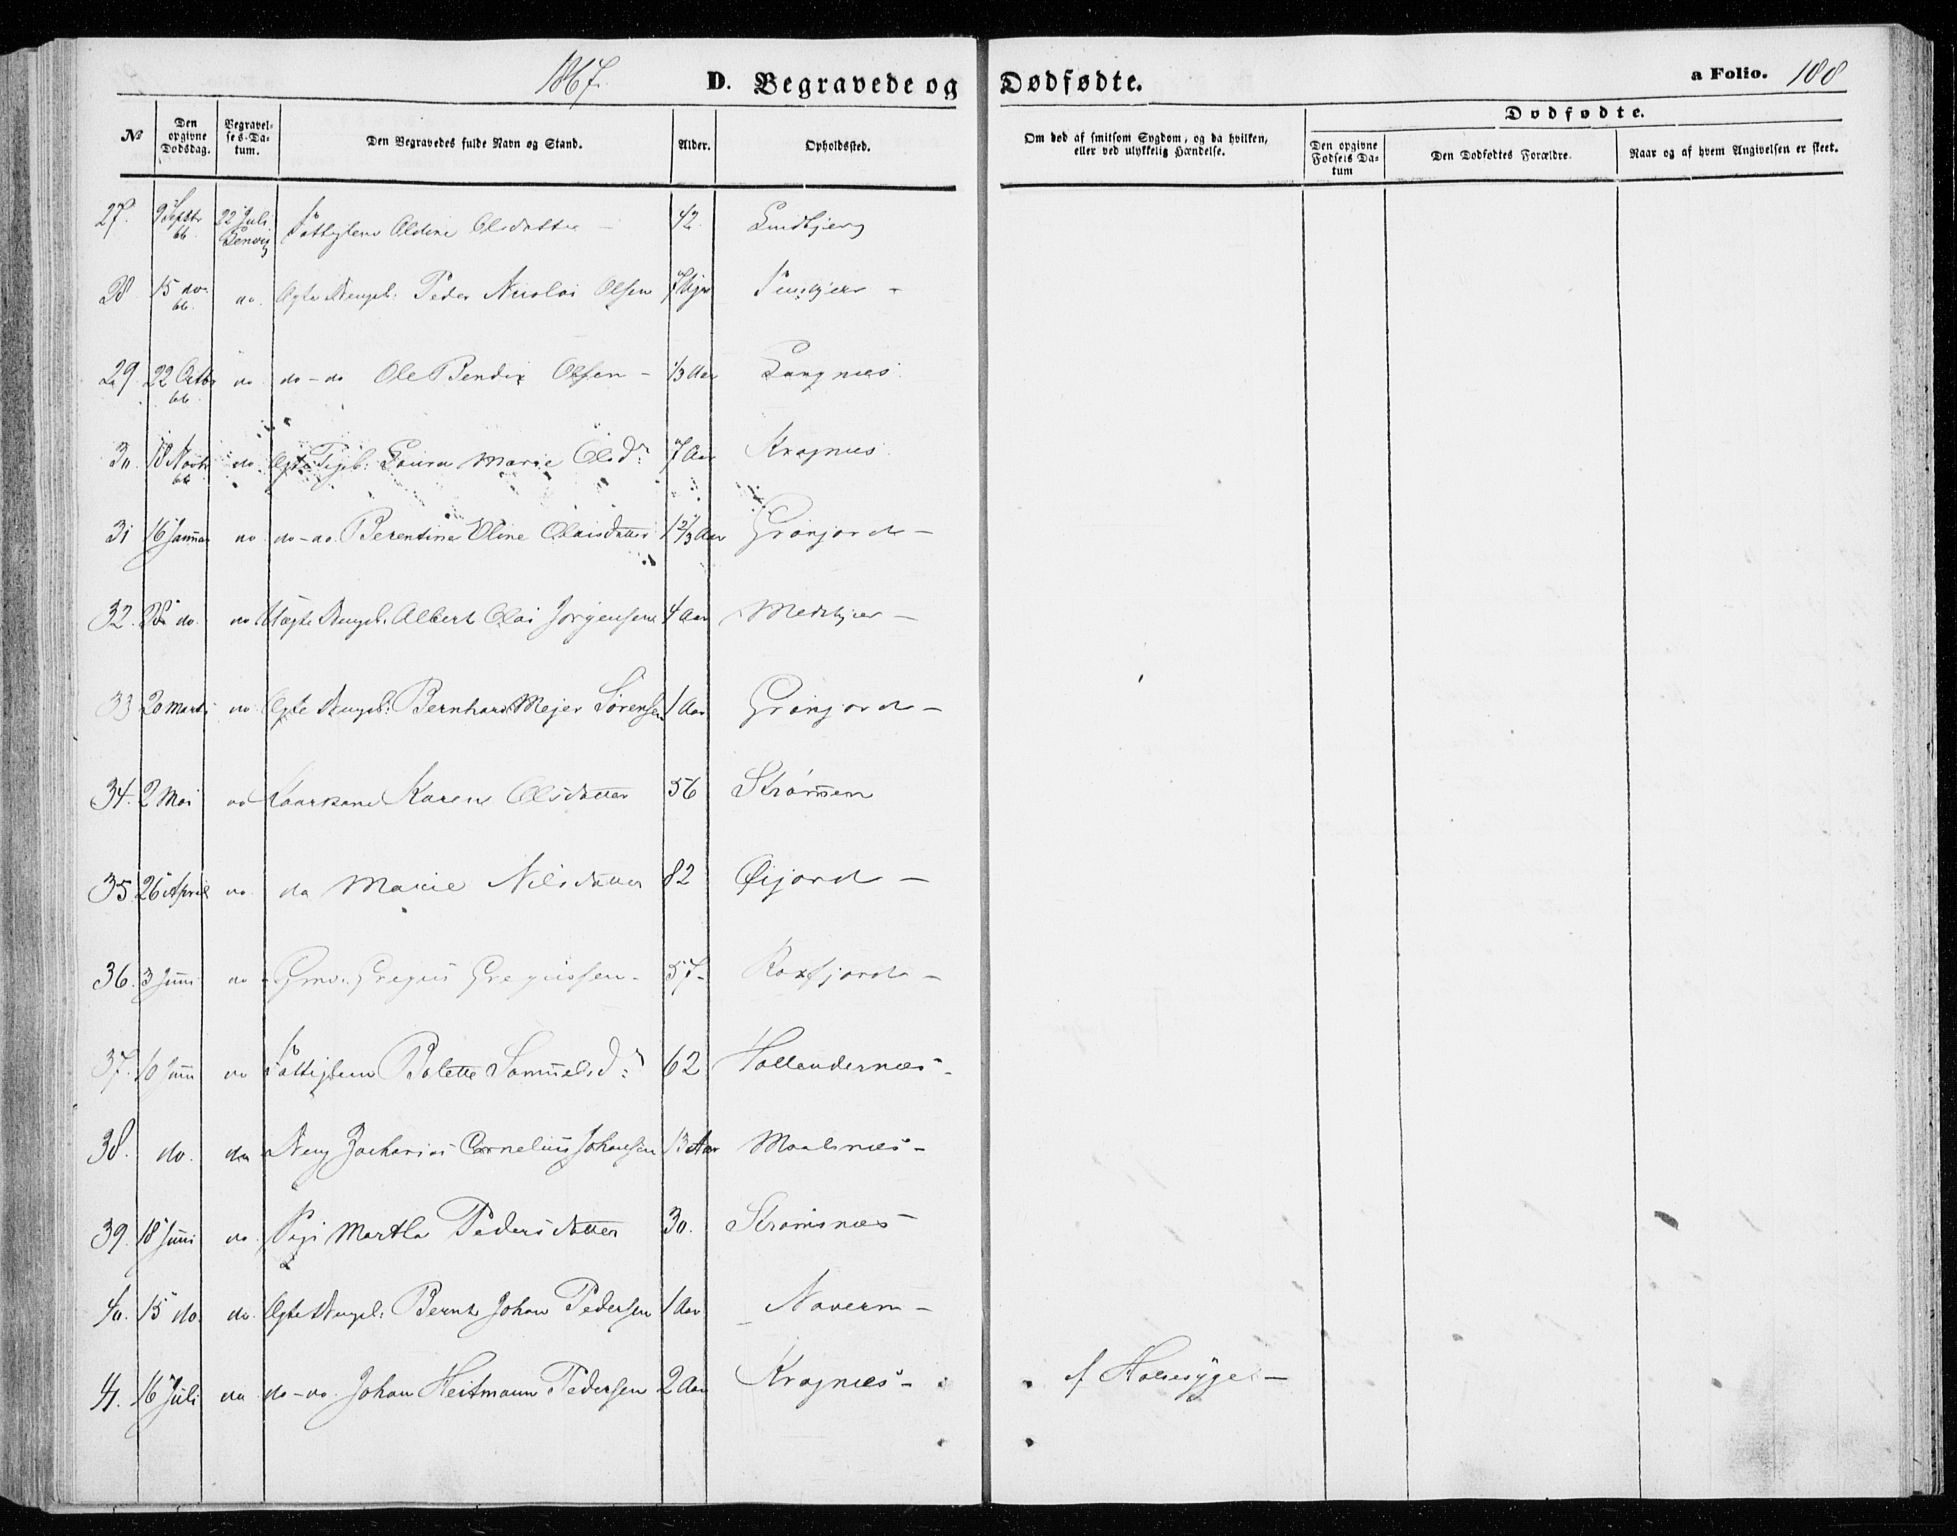 1867. D. Begravede og Dødfødte. a Folio. 188
No
Den opgivne Dødsdag.
Begravelses-Datum.
Den Begravedes fulde Navn og Stand.
Alder.
Opholdssted.
Om død af smitsom Sygdom, og da hvilken, eller ved ulykkelig Hændelse.
Dødfødte.
Den opgivne Fødsels Datum
Den Dødfødtes Forældre.
Naar og af hvem Angivelsen er skeet.
27. 9 Septbr 66. 22 Juli Lenvig Fattiglem Oldine Olsdatter – 42. Lundbjerg
28 15 do 66. do. Ægte Drengeb: Peder Nicolai Olsen
29 22 Octbr 66. do do-do Ole Bendix Olsen – 1/3 Aar Langnes
30. 18 Novbr 66 do Ægte Pigeb: Laura Marie Olsdr 7 Aar Kragnes
31 16 Januar do do-do. Berentine Eline Olaisdatter 1 2/3 Aar Grønjord –
32. 28 do. do Uægte Drengeb. Albert Olai Jørgensen 4 Aar Medbyer –
33 20 Marts do Ægte Drengeb: Bernhard Mejer Sørensen 1 Aar Grønjord –
34. 2 Mai do Kaarkone Karen Olsdatter 56 Strømmen
35 26 April do. do Marie Nilsdatter 82 Øijord –
36. 3 Juni do Gmd. Gregus Gregussen – 57- Roxfjord –
37. 10 Juni do Fattiglem Bolette Samuelsdr 62 Hollendernes –
38. do. do Dreng Zacharias Cornelius Johansen 13 Aar Maalsnes –
39. 18 Juni do. Pige Martha Pedersdatter 30. Strømsnes –
40. 15 do. do. Ægte Drengeb: Bernt Johan Pedersen 1 Aar Navern –
41. 16 Juli do do-do. Johan Heitmann Pedersen 2 Aar Kragnes – af Halssyge –